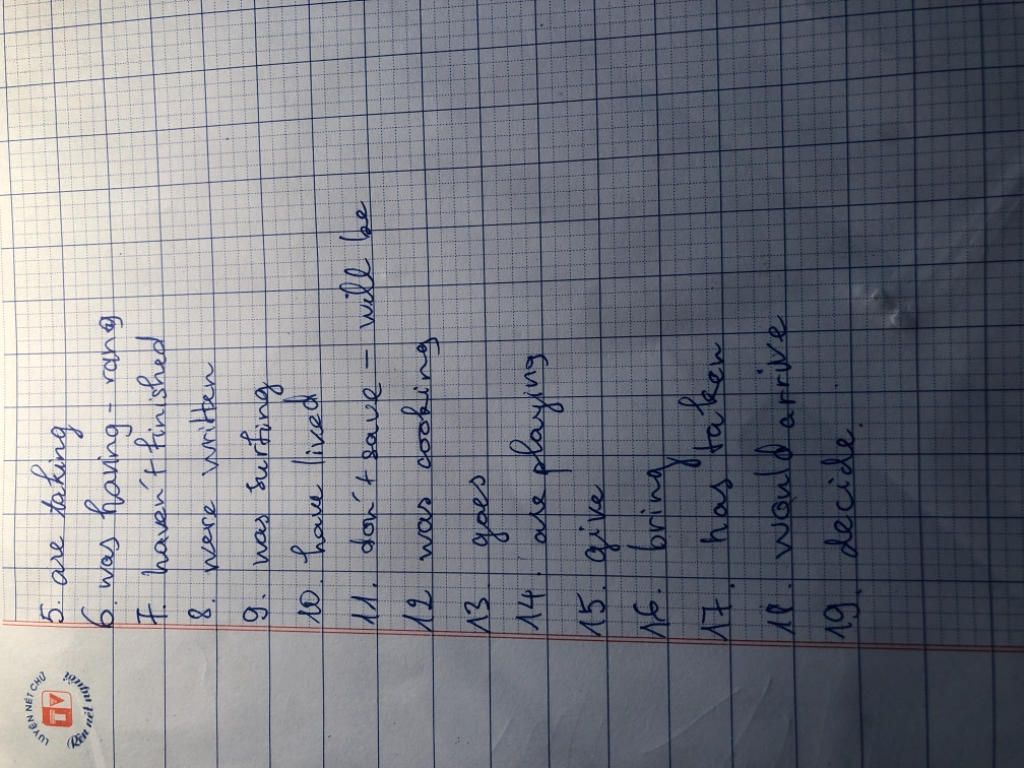 LUYỆN NÉT CHỮ
Rèn nét người
5. are taking
6. was having - rang
7. haven't finished
8. were written
9. was surfing
10. have lived
11. don't save - will be
12 was cooking
13. goes
14. are playing
15. give
16. bring
17. has taken
18. would arrive
19. decide.